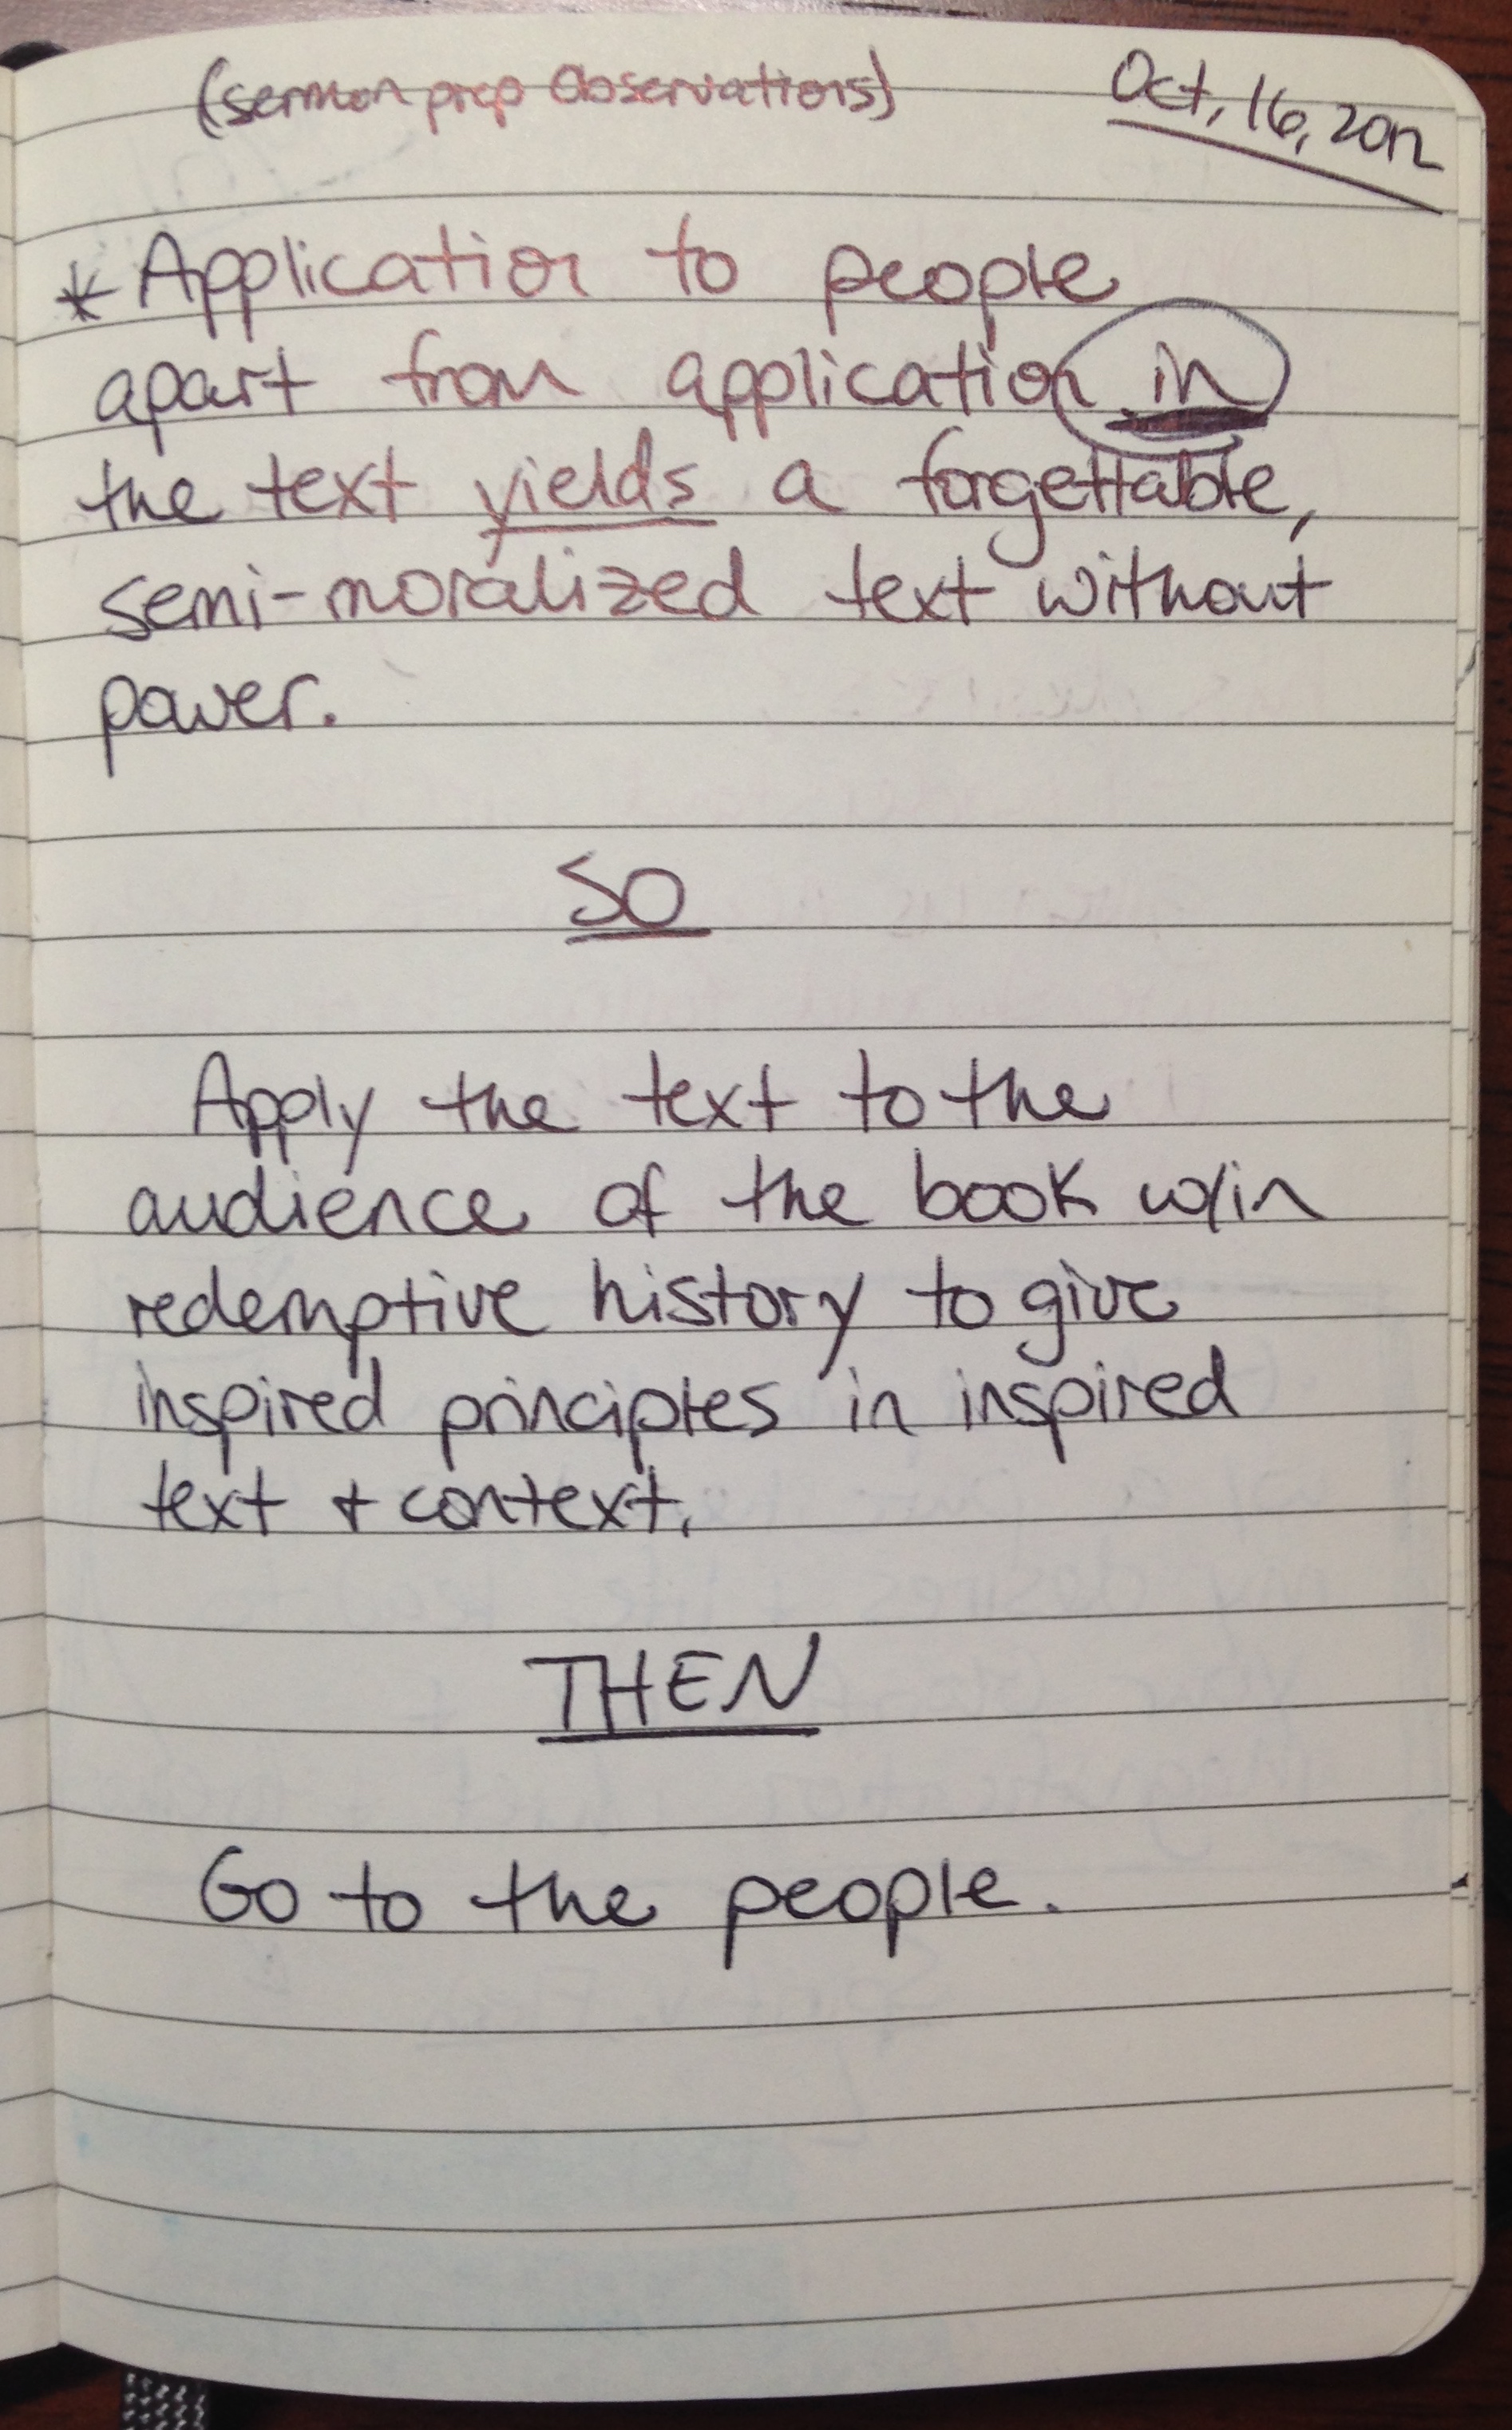 (sermon prep Observations)
Oct, 16, 2012
* Application to people
apart from application in
the text yields a forgettable,
semi-moralized text without
power.
SO
Apply the text to the
audience of the book w/in
redemptive history to give
inspired principles in inspired
text + context.
THEN
Go to the people.